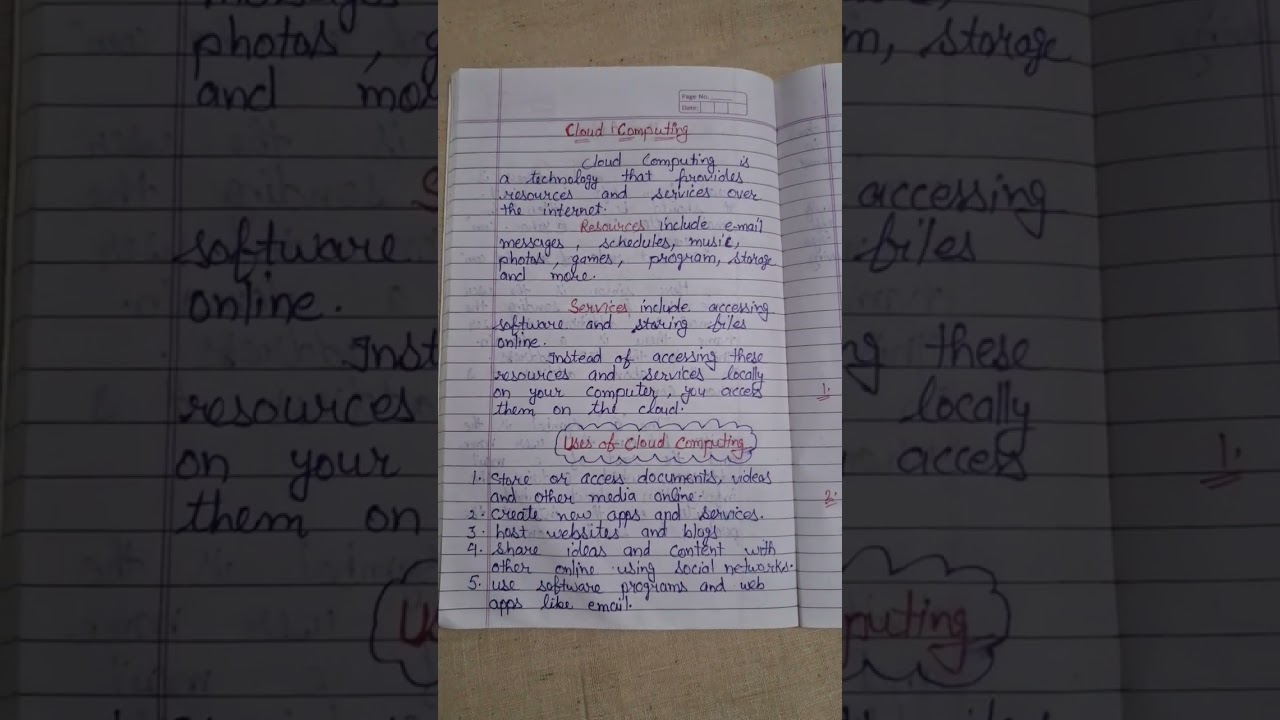 Page No.
Date:
Cloud Computing
Cloud Computing is
a technology that provides
resources and services over
the internet.
Resources include e-mail
messages, schedules, music,
photos, games, program, storage
and more.
Services include accessing
software and storing files
online.
Instead of accessing these
resources and services locally
on your computer, you access
them on the cloud.
Uses of Cloud Computing
1. Store or access documents, videos
and other media online.
2. Create new apps and services.
3. host websites and blogs
4. Share ideas and content with
other online using social networks.
5. use software programs and web
apps like email.
1.
2.